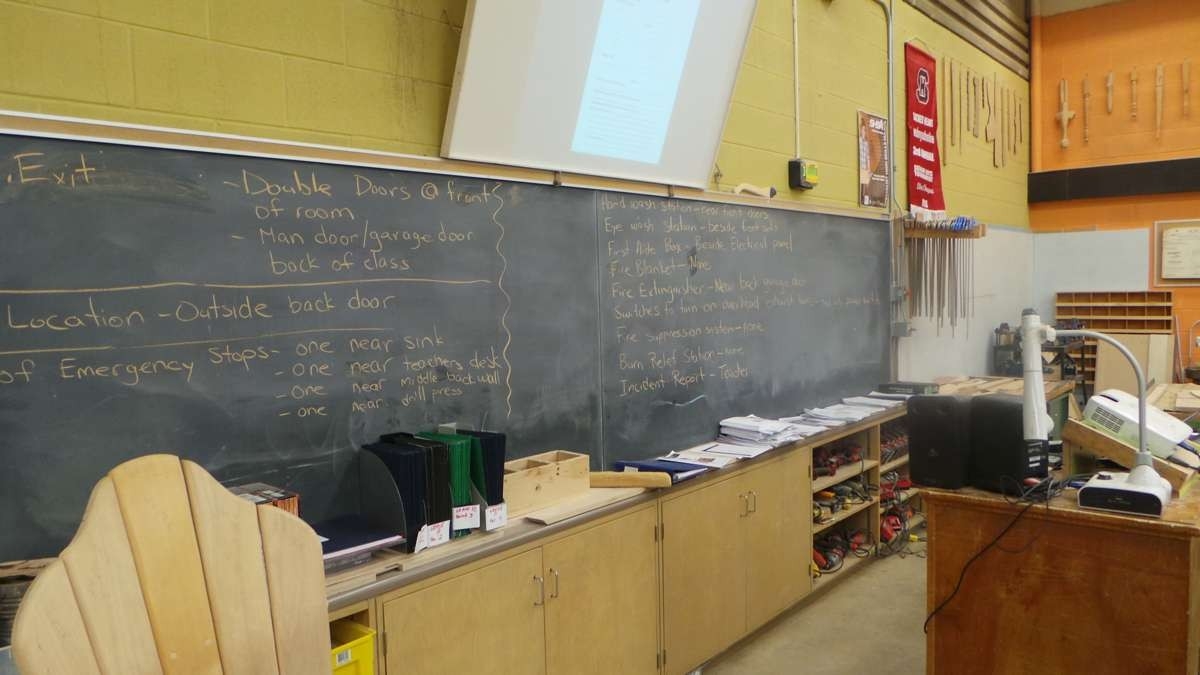 Exit
- Double Doors @ front
of room
- Man door/garage door
back of class
Location - Outside back door
of Emergency Stops - one near sink
- one near teachers desk
- one near middle back wall
- one near drill press
Hand wash station - near front doors
Eye wash station - beside
First Aide Box - Beside Electrical panel
Fire Blanket - None
Fire Extinguisher - Near back garage door
Switches to turn on overhead exhaust
Fire supression system - none
Burn Relief Station - none
Incident Report -